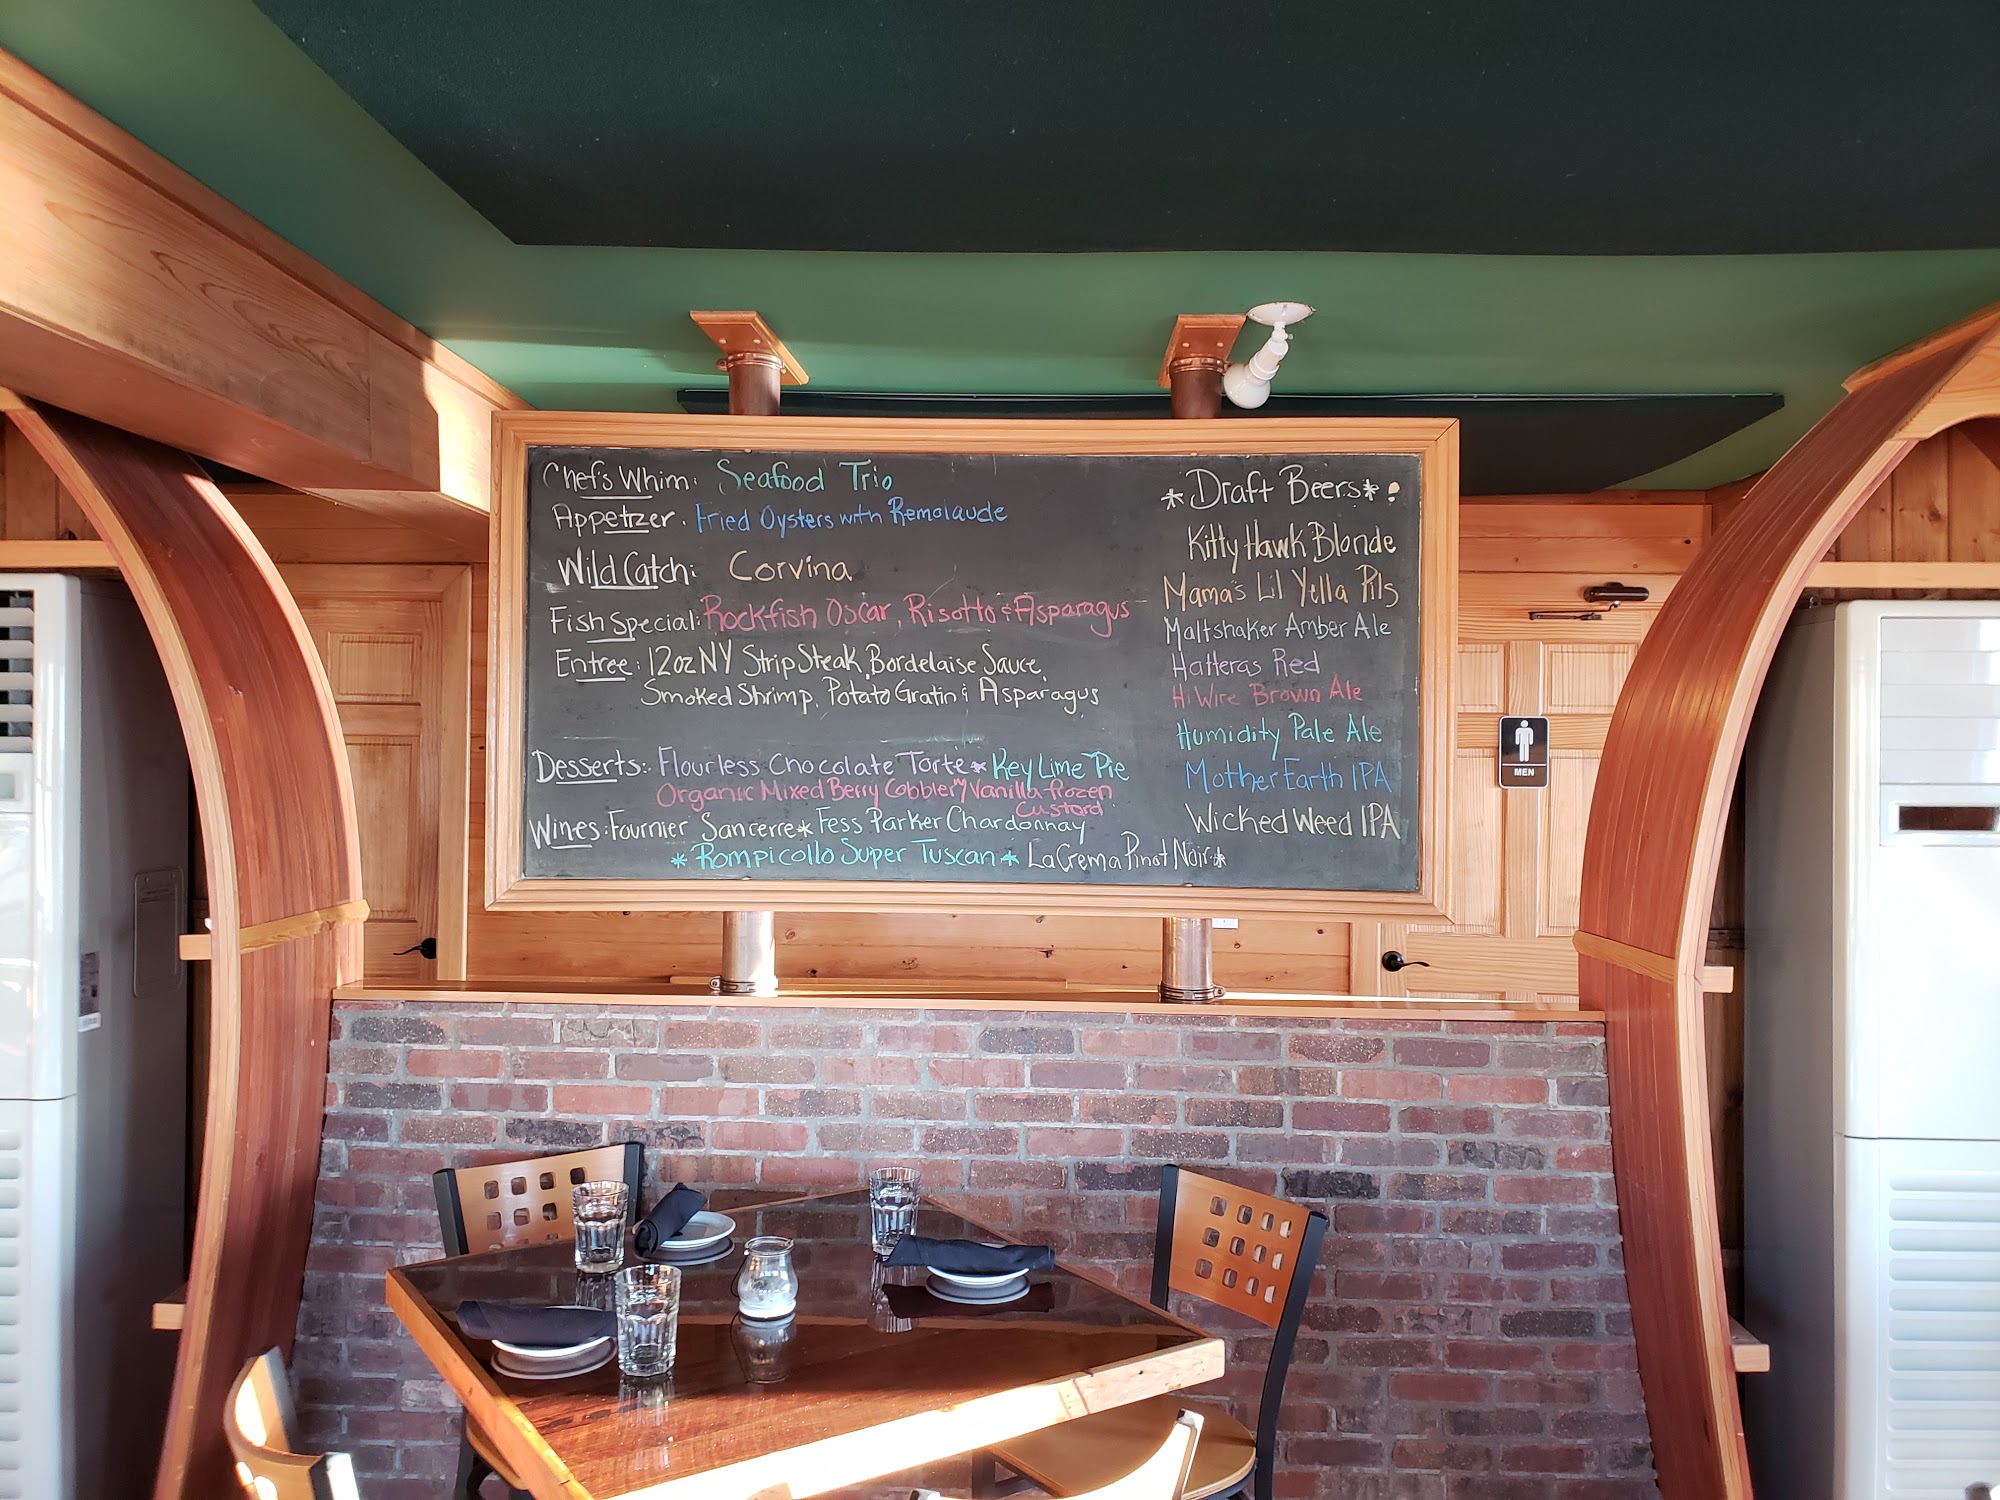 Chef's Whim: Seafood Trio
Appetizer: Fried Oysters with Remolaude
Wild Catch: Corvina
Fish Special: Rockfish Oscar, Risotto & Asparagus
Entree: 12oz NY Strip Steak, Bordelaise Sauce,
Smoked Shrimp, Potato Gratin & Asparagus
Desserts: Flourless Chocolate Torte * Key Lime Pie
Organic Mixed Berry Cobbler w/ Vanilla Frozen
Custard
Wines: Fournier Sancerre * Fess Parker Chardonnay
* Rompicollo Super Tuscan * La Crema Pinot Noir *
* Draft Beers * !
Kitty Hawk Blonde
Mama's Lil Yella Pils
Maltshaker Amber Ale
Hatteras Red
Hi Wire Brown Ale
Humidity Pale Ale
Mother Earth IPA
Wicked Weed IPA
MEN